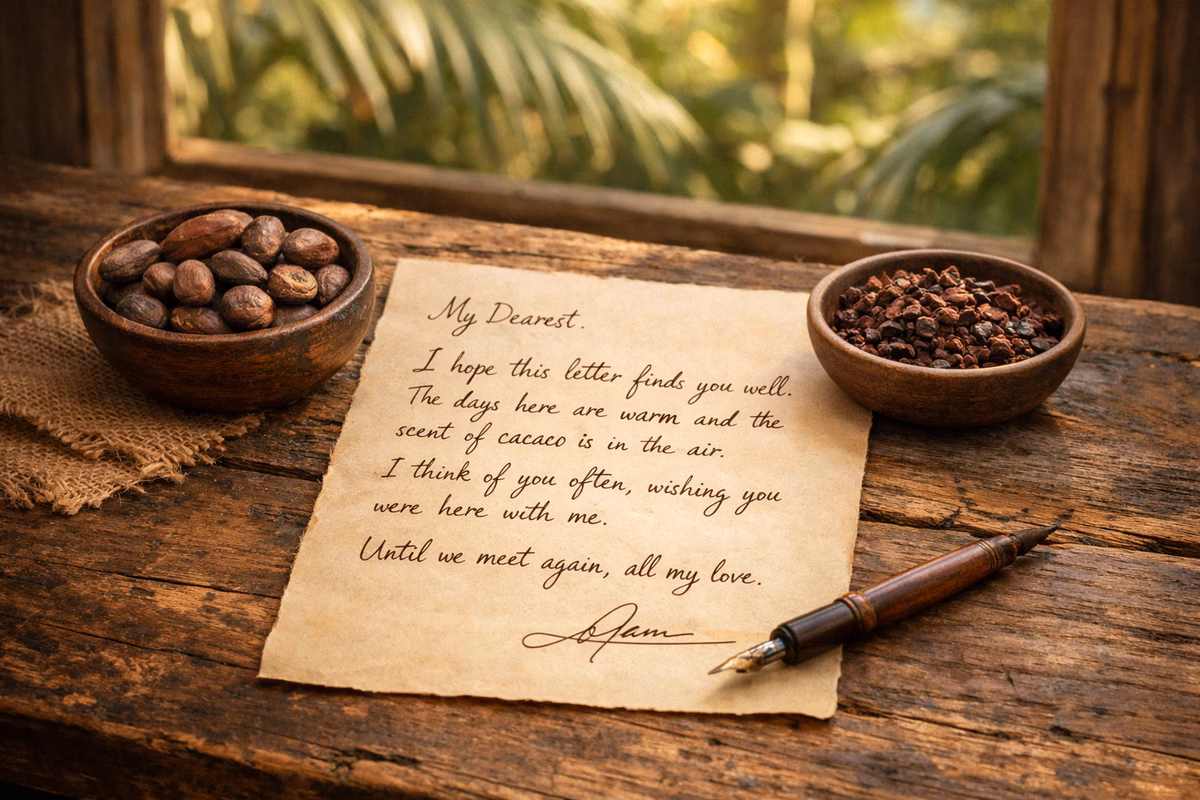 My Dearest.
I hope this letter finds you well.
The days here are warm and the
scent of cacaco is in the air.
I think of you often, wishing you
were here with me.
Until we meet again, all my love.